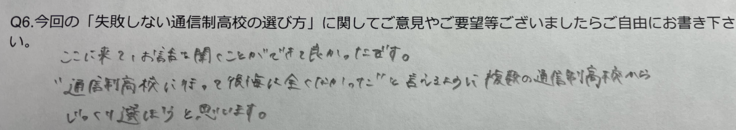 Q6.今回の「失敗しない通信制高校の選び方」に関してご意見やご要望等ございましたらご自由にお書き下さ
い。
ここに来て、お話を聞くことができて良かったです。
"通信制高校に行って後悔は全くなかった"と言えるように複数の通信制高校から
じっくり選ぼうと思います。